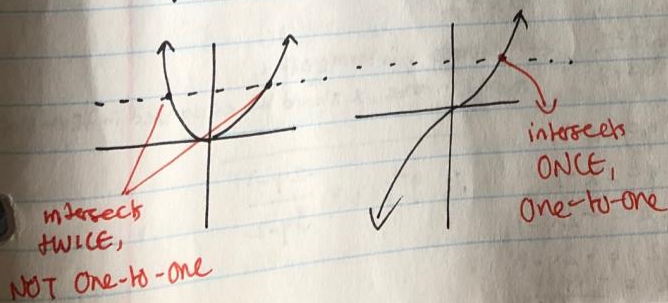 intersects
TWICE,
NOT One-to-one
intersects
ONCE,
One-to-one